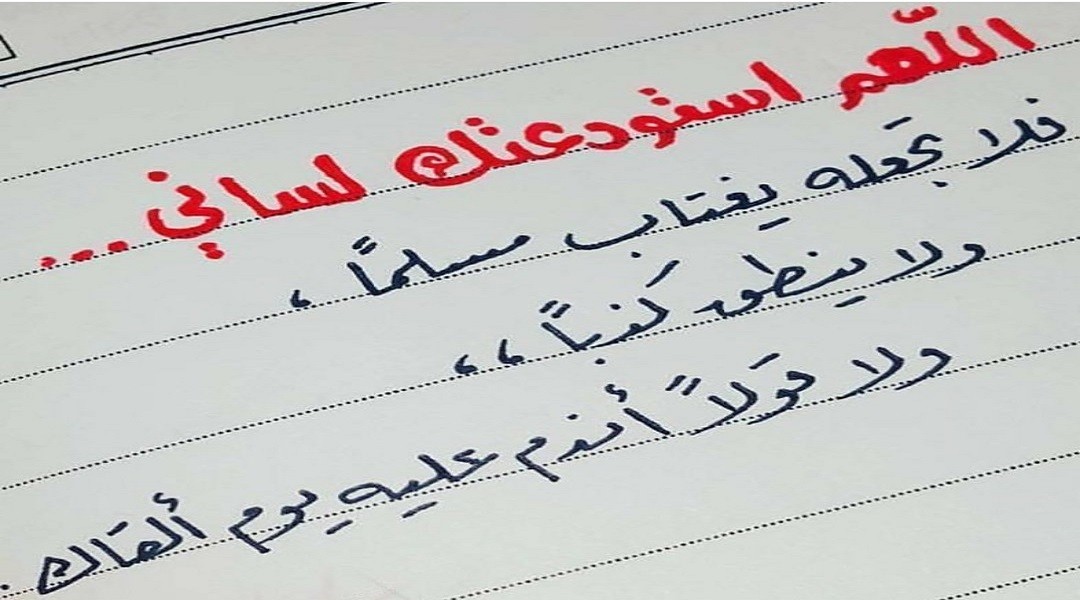 اللّهم استودعتك لساني ...
فلا تجعله يغتاب مسلماً ،
ولا ينطق كذباً ،،
ولا قولاً أندم عليه يوم ألقاك .